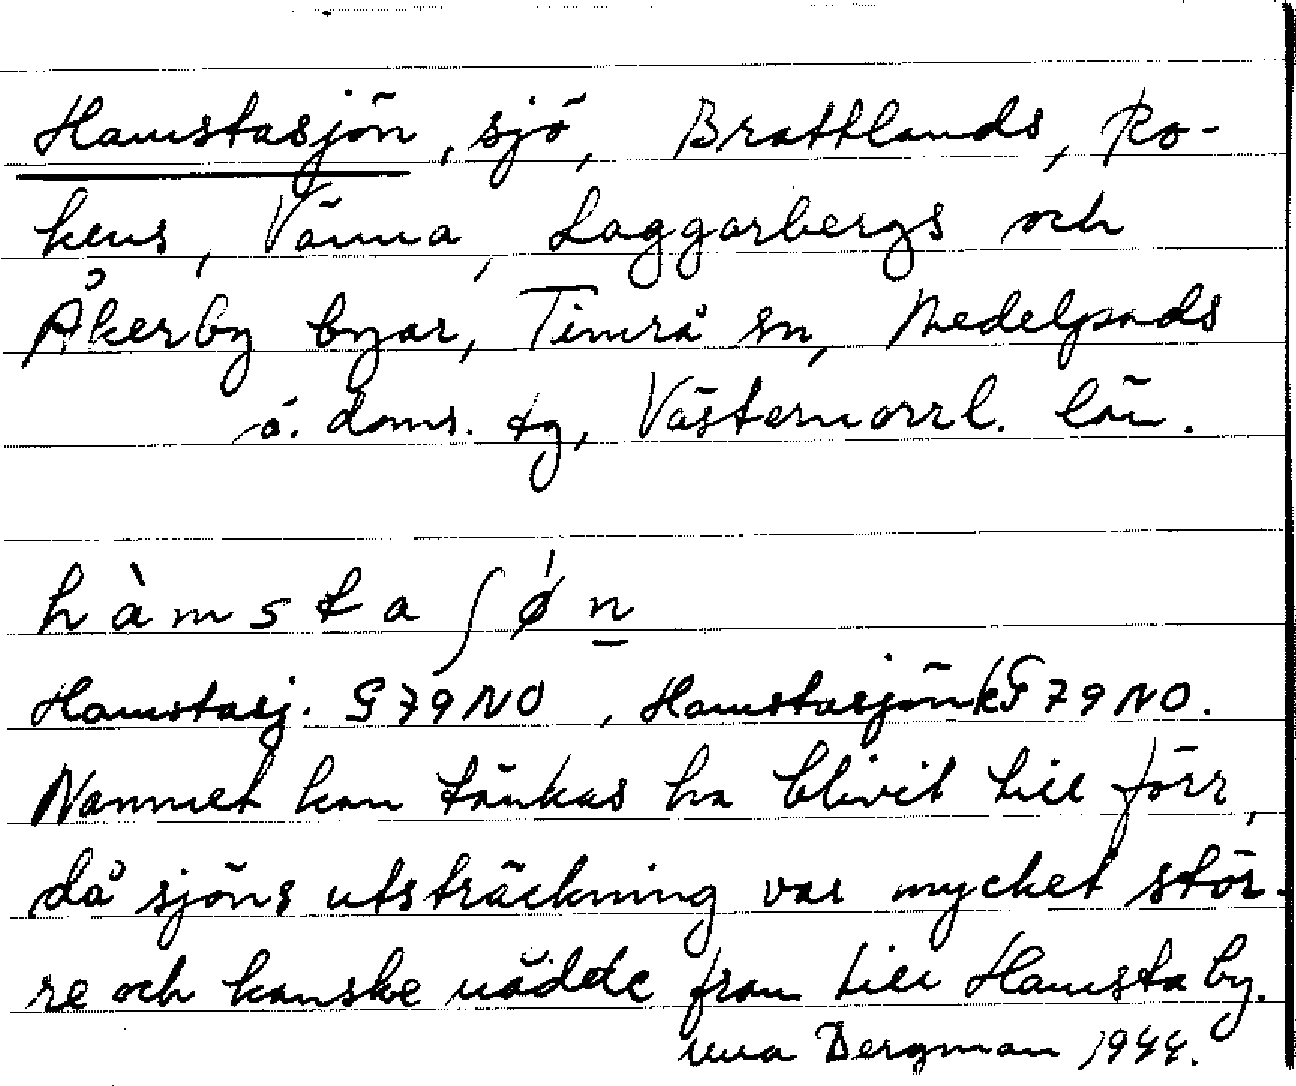 Hamstasjön, sjö, Brattlands, Ro-
kens, Vänna, Laggarbergs och
Åkerby byar, Timrå sn, Medelpads
ö. doms. tg, Västernorrl. län.
hàmstaʃǿn
Hamstasj. G79NO, Hamstasjön kF79NO.
Namnet kan tänkas ha blivit till förr,
då sjöns utsträckning var mycket stör-
re och kanske nådde fram till Hamsta by.
Bergman 1944.